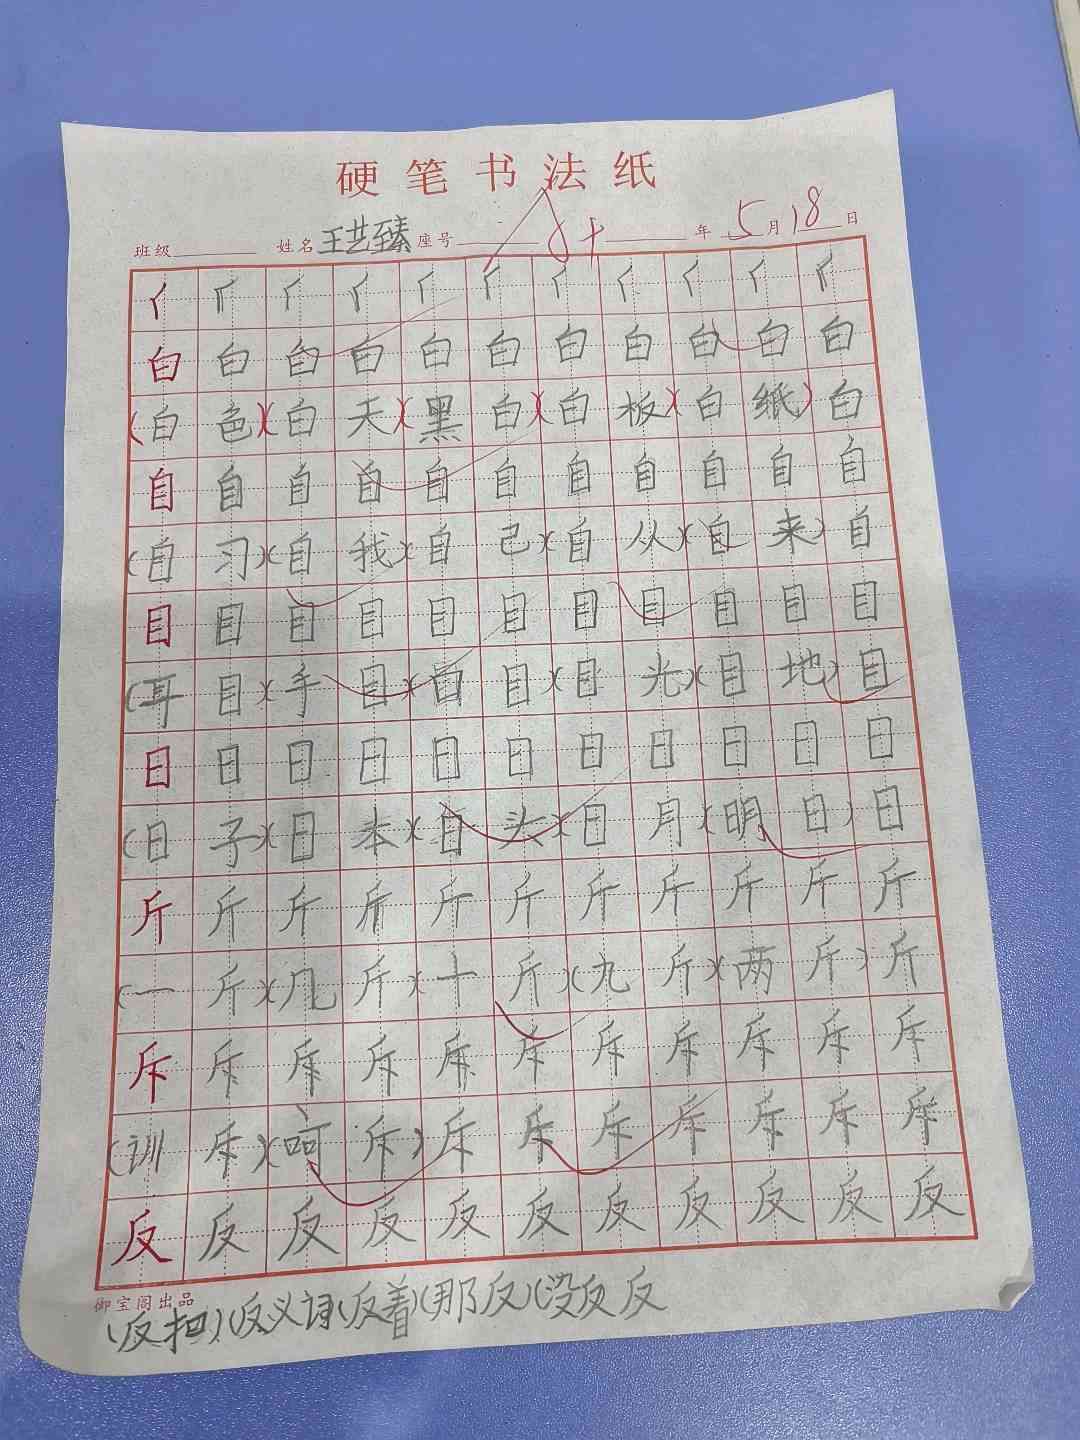 硬笔书法纸
班级 姓名 王艺臻 座号 年 5 月 18 日
亻 亻 亻 亻 亻 亻 亻 亻 亻 亻 亻
白 白 白 白 白 白 白 白 白 白 白
(白色)(白天)(黑白)(白板)(白纸)白
自 自 自 自 自 自 自 自 自 自 自
(自习)(自我)(自己)(自从)(自来)自
目 目 目 目 目 目 目 目 目 目 目
(耳目)(手目)(首目)(目光)(目地)目
日 日 日 日 日 日 日 日 日 日 日
(日子)(日本)(日头)(日月)(明日)日
斤 斤 斤 斤 斤 斤 斤 斤 斤 斤 斤
(一斤)(几斤)(十斤)(九斤)(两斤)斤
斥 斥 斥 斥 斥 斥 斥 斥 斥 斥 斥
(训斥)(呵斥)斥 斥 斥 斥 斥 斥 斥
反 反 反 反 反 反 反 反 反 反 反
御宝阁出品
(反扣)(反义词(反着)(那反)(没反 反